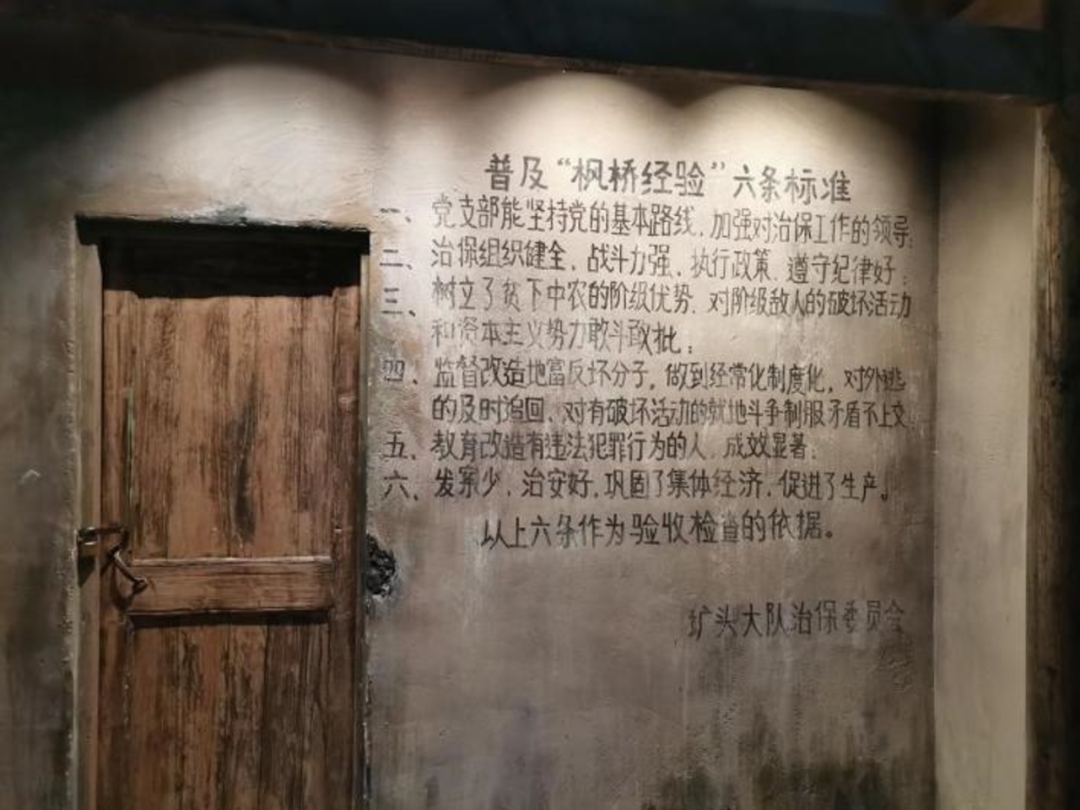 普及“枫桥经验”六条标准
一、党支部能坚持党的基本路线、加强对治保工作的领导;
二、治保组织健全、战斗力强、执行政策、遵守纪律好;
三、树立了贫下中农的阶级优势、对阶级敌人的破坏活动
和资本主义势力敢斗敢批;
四、监督改造地富反坏分子,做到经常化制度化,对外逃
的及时追回、对有破坏活动的就地斗争制服矛盾不上交
五、教育改造有违法犯罪行为的人,成效显著;
六、发案少,治安好,巩固了集体经济,促进了生产。
以上六条作为验收检查的依据。
圹头大队治保委员会